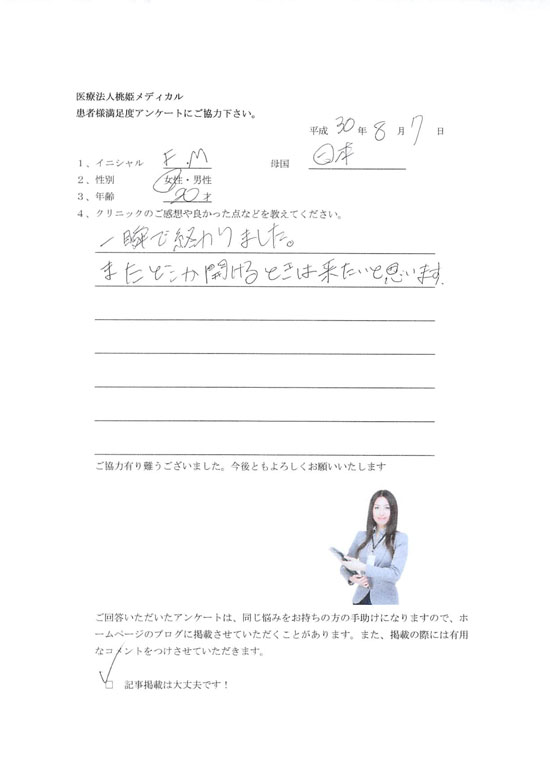 医療法人桃姫メディカル
患者様満足度アンケートにご協力下さい。
平成 30 年 8 月 7 日
1、イニシャル F.M 母国 日本
2、性別 女性・男性
3、年齢 20 才
4、クリニックのご感想や良かった点などを教えてください。
一瞬で終わりました。
またどこか開けるときは来たいと思います.
ご協力有り難うございました。今後ともよろしくお願いいたします
ご回答いただいたアンケートは、同じ悩みをお持ちの方の手助けになりますので、ホ
ームページのブログに掲載させていただくことがあります。また、掲載の際には有用
なコメントをつけさせていただきます。
□ 記事掲載は大丈夫です！